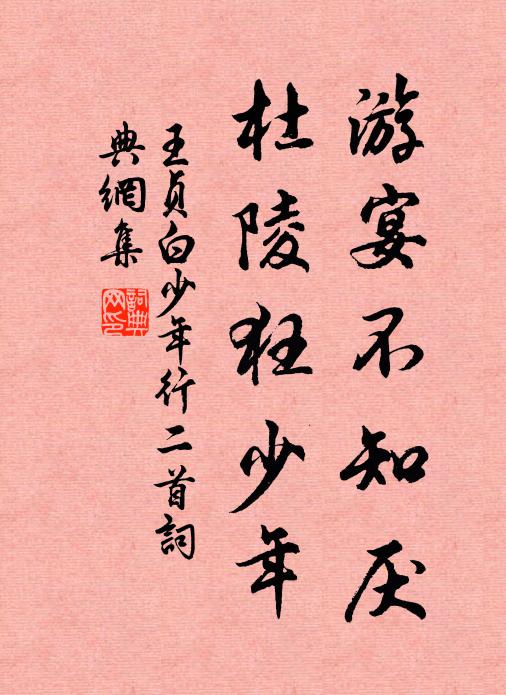 游宴不知厌
杜陵狂少年
王贞白少年行二首詞
典網集
詞典
网印